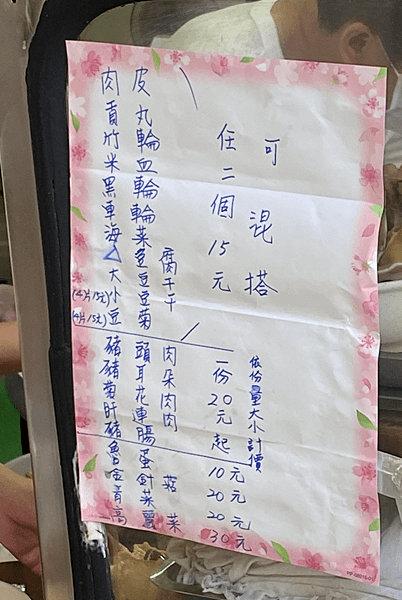 肉皮
貢丸
竹輪
米血
黑輪
車輪
海菜
△魚腐
大豆干
(4片15元)小豆干
(4片15元)豆菊
任二個15元
可混搭
豬頭肉
豬耳朵
菊花肉
肝連肉
豬腸
一份20元起
依份量大小計價
魯蛋 10元
金針菇 20元
青菜 20元
高麗菜 30元